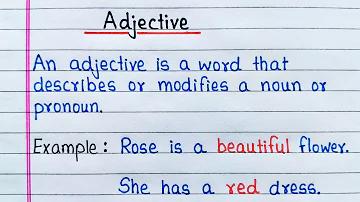 Adjective
An adjective is a word that
describes or modifies a noun or
pronoun.
Example : Rose is a beautiful flower.
She has a red dress.